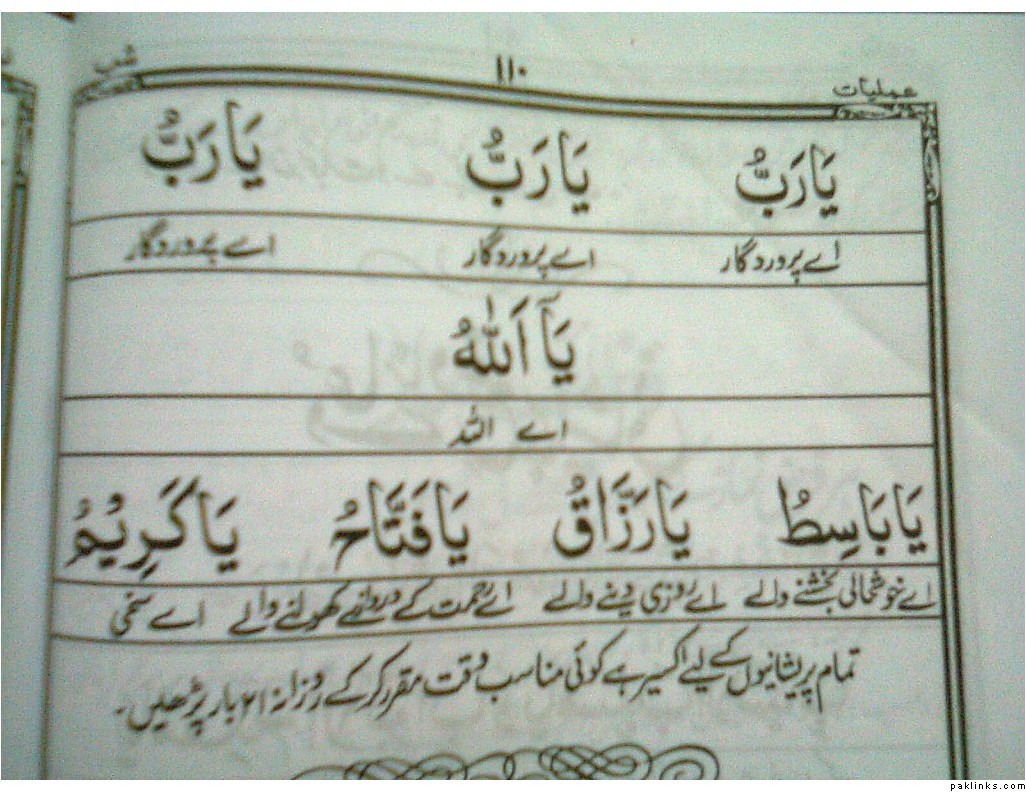 عملیات ۱۱۰
یَا رَبُّ یَا رَبُّ یَا رَبُّ
اے پروردگار اے پروردگار اے پروردگار
یَآ اَللّٰہُ
اے اللہ
یَا بَاسِطُ یَا رَزَّاقُ یَا فَتَّاحُ یَا کَرِیْمُ
اے خوشحالی بخشنے والے اے روزی دینے والے اے رحمت کے دروازے کھولنے والے اے سخی
تمام پریشانیوں کے لیئے اکسیر ہے کوئی مناسب وقت مقرر کرکے روزانہ ۲۱ بار پڑھیں۔
paklinks.com